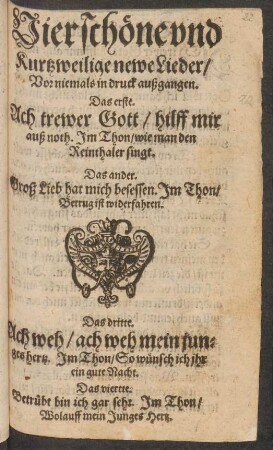 Vier schöne vnd
Kurtzweilige newe Lieder/
Vor niemals in druck außgangen.
Das erste.
Ach trewer Gott / hilff mir
auß noth. Im Thon/ wie man den
Reinthaler singt.
Das ander.
Groß Lieb hat mich besessen. Im Thon/
Betrug ist widerfahren.
Das dritte.
Ach weh / ach weh mein jun-
ges hertz. Im Thon/ So wünsch ich jhr
ein gute Nacht.
Das vierte.
Betrübt bin ich gar sehr. Im Thon/
Wolauff mein Junges Hertz.